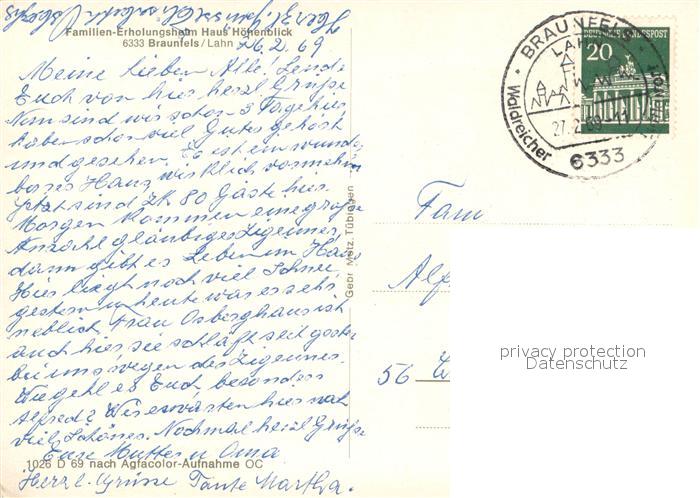 Herzl. Grüsse
Familien-Erholungsheim Haus Höhenblick
6333 Braunfels / Lahn
26.2.69
Meine lieben Alle! Sende
Euch von hier herzl Grüße
Nun sind wir schon 3 Tage hier
haben schon viel Gutes gehört
und gesehen. Es ist ein wunder
bares Haus, wirklich vornehm
Jetzt sind zk 80 Gäste hier.
Morgen kommen eine große
Anzahl gläubiger Zigeuner,
dann gibt es Leben im Haus
Hier liegt noch viel Schnee
gestern u. heute war es sehr
neblich. Frau Osberghaus ist
auch hier, sie schläft seit gestern
bei uns wegen der Zigeuner.
Wie geht es Euch besonders
Alfred? Wir erwarten hier noch
viel Schönes. Nochmal herzl Grüße
Eure Mutter u Oma
1026 D 69 nach Agfacolor-Aufnahme OC
Herzl. Grüsse Tante Martha.
Gebr. Metz, Tübingen
BRAUNFELS
LAHN
Waldreicher
27.2.69-11
6333
DEUTSCHE BUNDESPOST
20
Fam
Alf
56 W
privacy protection
Datenschutz